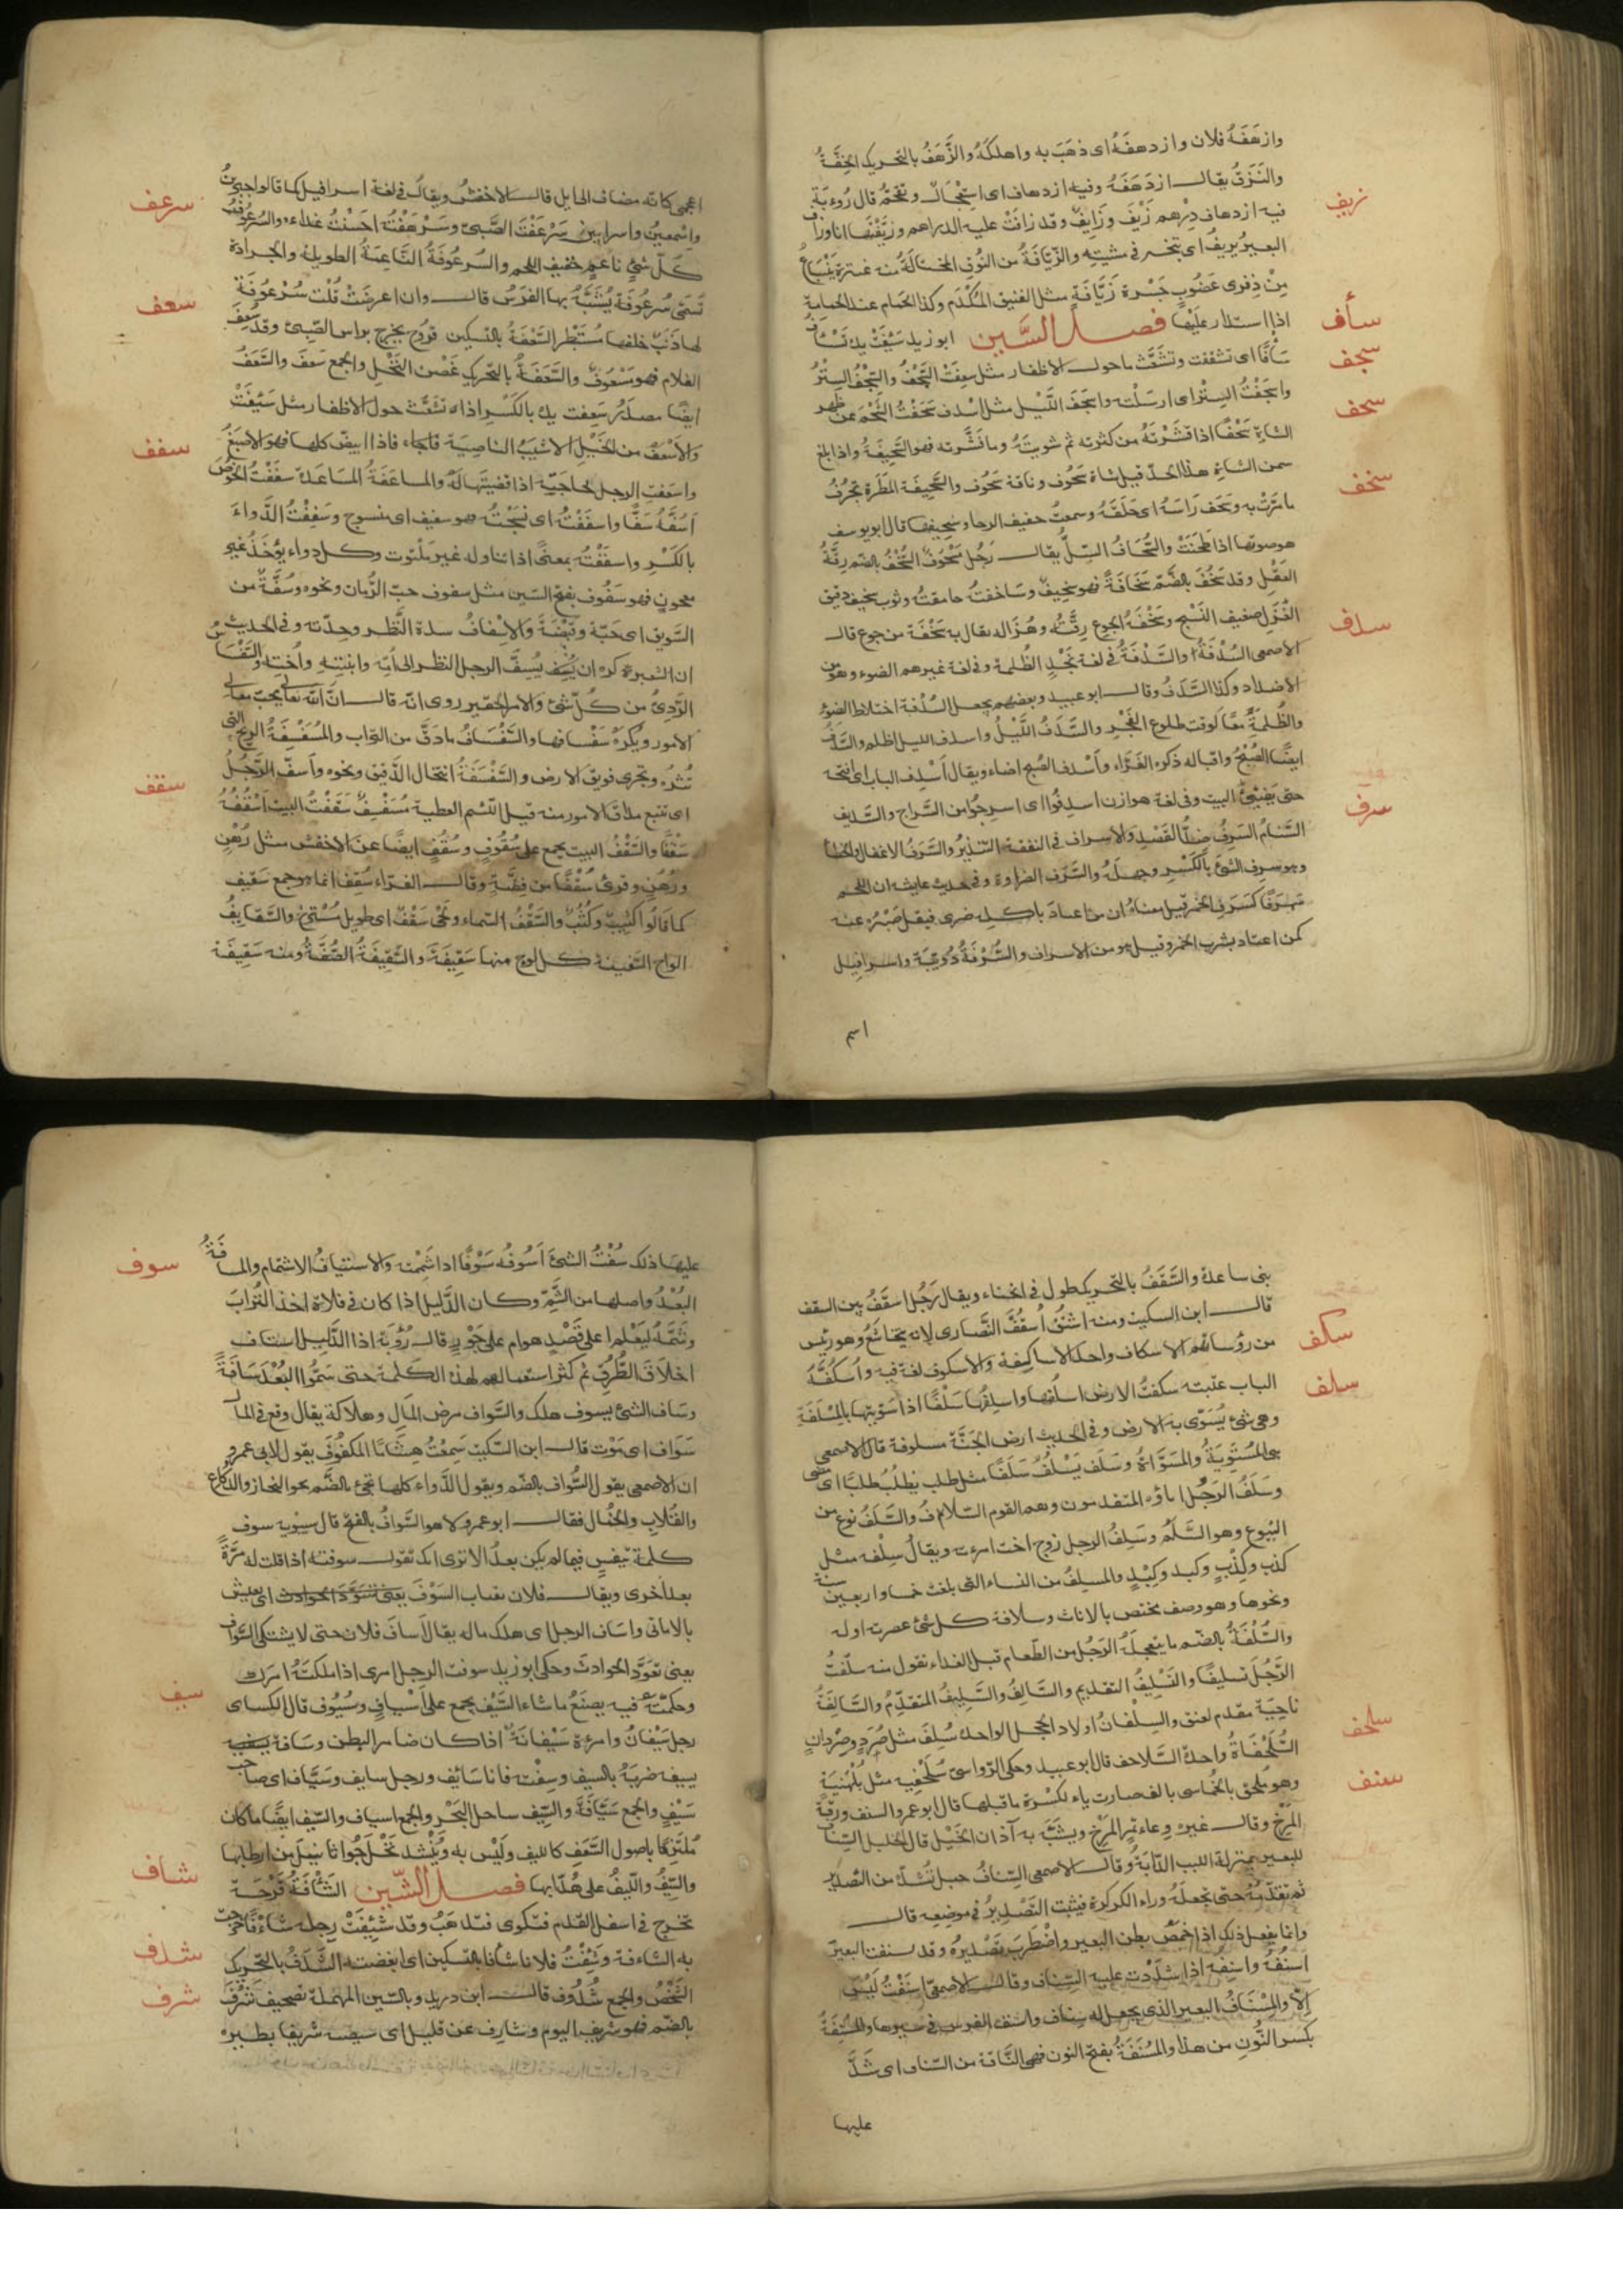 وازهَفَهُ فلان وازدهفَهُ اى ذهَبَ به واهلكَهُ والزَّهَفُ بالتحريك الخِفَّةُ
والنَزَقُ يقال ازدَهَفَهُ وفيه ازدهاف اى استِعْجَالٌ وتقحّمٌ قال رُوءبَة
زيف
فيه ازدهاف دِرْهم زَيْفٌ وزَايفٌ وقد زافَتْ عليه الدراهم وزيّفتها انا وزاف
البعيرُ يزيفُ اى تبختر فى مشيته والزَيّافةُ من النُوقِ المختالَةُ منه عنترة يَنْبَاعُ
مِنْ ذِفرى غَضُوبٍ جَسْرة زَيَّافةٍ مثل الفنيق المُكْدَمِ وكذا الحمام عند الحمامة
سأف
اذا استدار عليها فصل السّين ابو زيد سَئِفَتْ يده تَسْأَفُ
سجف
سَأفًا اى تشققت وتشعّث ما حول الاظفار مثل سعِفَتْ السَّجْفُ والسِّجْفُ السِتْرُ
واسجَفْتُ السِتْر اى ارسَلْته واسجَفَ اللّيل مثل اسْدف سَحَفْتُ الشَّحْمَ عن ظهر
سحف
الشاةِ سَحْفًا اذا قَشَرْتَهُ من كثرته ثم شويتَهُ وما قَشَرته فهو السَّحِيفَةُ واذا بلغ
سمن الشاةِ هذا الحدّ قيل شاة سَحُوف وناقة سَحُوف والسَّحِيفَة المَطَرة تجرُفُ
سخف
ما مَرّتْ به وسَحَف رَاسَهُ اى حَلَقَهُ وسمعتُ حفيف الرحا وسحيفها قال ابو يوسف
هو صوتها اذا طَحَنَتْ والسُّحَافُ السِّلُّ يقال رَجُل مَسْحُوفٌ السُّخْفُ بالضم رِقَّةُ
العَقْلِ وقد سَخُفَ بالضَّم سَخَافَةً فهو سَخِيفٌ وسَاخفتُه حامقتُه وثوب سخيف رقيق
سدف
الغَزْلِ ضعيف النَّسْجِ وسَخْفَةُ الجوعِ رِقّتُه وهُزَاله يقال به سَخْفَة من جوع قال
الاصمعى السُّدْفَةُ والسَّدْفَةُ فى لغة نَجْدٍ الظُلمة وفى لغة غيرهم الضوء وهو من
الاضداد وكذا السَّدَفُ وقال ابو عبيد وبعضهم يجعل السُدْفة اختلاط الضوءِ
والظُلمةِ معًا كَوقت طلوع الفَجْرِ والسَّدَفُ اللَّيْلُ واسدف الليل اظلم والسَّدَفُ
ايضًا الصُبْحُ واقباله ذكره الفرّاء واَسْدف الصُبح اضاء ويقال اَسْدِف الباب اى افتحه
حتى يضيئُ البيت وفى لغة هوازن اسدفُوا اى اسرِجُوا من السَّراج والسَّديف
سرف
السَّنامُ السَرفُ ضدُّ القَصْدِ والاسراف فى النفقة التبذيرُ والسَّرَفُ الاغفال والخطا
وهو سرف الشىء بالكَسْرِ وجهلَهُ والسَّرَف الضراوة وفى حديث عايشة ان للحم
سَرَفًا كسَرَف الخمر قيل معناه ان من اعتادَ باكله ضرى فيقل صَبْرُه عنه
كمن اعتاد بشرب الخمر وقيل هو من الاسراف والسُّرْفَةُ دُوَيبَّة واسرافيل
اسم
اعجمى كانّه مضاف الى ايل قال الاخفش ويقال فى لغة اسرافيل كما قالوا جبرين
سرعف
واسمعين واسرايين سَرْعَفْتُ الصَّبىّ وسَرْهَفْتُه احْسَنْتُ غذاءه والسُرْعُوفُ
كُلّ شىءٍ ناعمٍ خفيفِ اللحم والسُرعُوفَةُ النَّاعمَةُ الطويلة والجرادة
سعف
تُسَمّى سُرعُوفَة يُشَبَّهُ بها الفَرَسُ قال وان اعرضَتْ قُلْت سُرْعُوفَة
لها ذَنَبٌ خلفها مُسْبَطِر السَّعْفَةُ بالتسكين قروح يخرج براس الصّبىّ وقد سُعِفَ
الغلام فهو مَسْعُوفٌ والسَّعَفَةُ بالتّحريك غصْن النَّخْلِ والجمع سَعَف والسَّعَفُ
ايضًا مصدَرُ سَعِفت يده بالكَسْرِ اذا تشعّث حول الاظفار مثل سَئِفَتْ
سفف
والاَسْعَفُ من الخَيْلِ الاشيَبُ الناصية فاذا ابيضّ كلها فهو الاصبَغُ
واسعَفْت الرجل لحاجتِه اذا قضيتَها له والمساعَفَةُ المساعَدة سفَفْتُ الخُوصَ
اَسُفّهُ سَفًّا واسفَفْتُه اى نسَجْتُه فهو سفيف اى منسوج وسَفِفْتُ الدَّواءَ
بالكَسْرِ واستفَفْتُه بمعنًى اذا تناوله غير مَلْتوت وكل دواء يُؤخَذُ غير
معجونٍ فهو سَفُوف بفتح السّين مثل سفوف حبّ الرُّمان ونحوه وسُفَّةٌ من
السَّويق اى حَبّة وقُبْضَةٌ والاِسْفافُ شدة النَّظر وحدّته وفى الحديث
ان الشعبى كره ان يُسِفّ الرجل النظر الى امّه وابنتِه واُختِه والسَّفْسَافُ
الرَّدِىُّ من كُلّ شَىْءٍ والامر الحَقير روى انّه قال انّ الله تعالى يحبّ معالى
الامور ويكرَهُ سَفْسافَها والسَّفْسَافُ ما دَقَّ من التراب والمُسَفْسِفَةُ الريح التى
سقف
تُثيرُه وتجرى فُويق الارض والسَّفْسَفَةُ انتحال الدَّقيق ونحوه واَسفّ الرَّجُلُ
اى تتبع مداقّ الامور منه قيل للَّئيم العطية مُسَفْسِفٌ سَقَفْتُ البيت اَسْقُفُهُ
سَقْفًا والسَّقْفُ البيت يجمع على سُقُوفٍ وسُقُفٍ ايضًا عن الاخفش مثل رَهْنٍ
ورُهُنٍ وقرئ سُقُفًا من فِضَّةٍ وقال الفرّاء سُقف انما هو جمع سَقيف
كما قالُوا كثيبٌ وكُثُبٌ والسَّقْفُ السّماء ولَحْىٌ سَقْفٌ اى طويل مُسْتَرخٍ والسَّقايِفُ
الواح السَّفينة كل لوحٍ منها سَقِيفَة والسَّقيفَةُ الصُّفَّةُ ومنه سَقِيفَة
بنى ساعدة والسَّقَفُ بالتحريك طول فى انحناء ويقال رَجُل اسقَفُ بين السقف
قال ابن السكيت ومنه اشتُقّ اُسقُفُّ النَّصارى لانه يتخاشَعُ وهو رئيس
سكف
من رؤسائهم الاسكاف واحد الاساكفة والاسكوف لغة فيه واُسكُفَّةُ
سلف
الباب عتبته سلفتُ الارض اسلُفُها واسلِفُها سَلْفًا اذا سَوّيتها بالمِسْلَفَةِ
وهى شئ يُسَوّى به الارض وفى الحديث ارض الجنَّة مسلوفة قال الاصمعى
هى المُسْتَوِيَةُ والمُسَوَّاةُ وسَلَف يَسْلُفُ سَلَفًا مثل طلب يطلُبُ طلبًا اى مضى
وسَلَفُ الرَجُلِ اباؤه المتقدمون وهم القوم السُّلاّف والسَّلَفُ نوع من
البُيُوع وهو السَّلَمُ وسَلِفُ الرجل زوج اخت امرءته ويقال سِلْفه مثل
كذِب وكِذْبٍ وكبد وكِبْدٍ والمسلِفُ من النساء التى بلغت خمسا واربعين سنة
ونحوها وهو وصف مختص بالاناث وسلافة كل شئ عصرته اوله
والسُّلْفَةُ بالضم ما يتعجلُه الرَجُل من الطَّعام قبل الغداء تقول منه سلّفتُ
الرَّجُلَ تسليفًا والتَّسْلِيفُ التقديم والسَّالفُ والسَّلِيفُ المتقدِّمُ والسَّالِفَةُ
ناحِيَة مقدّم العنق والسِلْفانُ اولاد الحجل الواحد سُلَف مثل صُرَدٍ وصِرْدانٍ
سلحف
السُّلَحْفَاةُ واحدة السَّلاحف قال ابو عبيد وحكى الرّواسىّ سُلَحْفِيَة مثل بُلَهْنيَةٍ
سنف
وهو مُلحق بالخُماسى بالف صارت ياء لكَسْرة ما قبلها قال ابو عمرو السنف ورقة
المَرْخِ وقال غيره وِعاء ثمر المَرْخِ ويشبَّه به آذان الخَيْل قال الخليل السِّناف
للبعير بمنزلة اللبب للدّابّة وقال الاصمعى السِّنافُ حبل تُشدُّ من التَّصدير
ثم تقدّمهُ حتى تجعلَه وراء الكركرة فيثبت التَّصْديرُ فى موضعِه قال
وانما يفعل ذلك اذا خَمُصَ بطن البعير واضْطرب تَصْديرُه وقد سنفت البعيرَ
اسنُفُه واسنِفه اذا شدَدْت عليه السِّناف وقال الاصمعىّ اسنَفْتُ لَيْسَ
اِلاّ والمِسْنَافُ البعير الذى يجعل له سناف واسنف الفرس فى سيرها والمُسْنِفَةُ
بكسر النُّونِ من هذا والمُسْنَفَةُ بفتح النون فهى النَّاقة من السّناف اى شَدَّ
عليها
سوف
عليها ذلك سُفْتُ الشئَ اَسُوفُه سَوْفًا اذا شَمِمْته والاستيافُ الاشتمام والمسافَةُ
البُعْدُ واصلها من الشَّمِّ وكان الدَّليل اذا كان فى فلاة اخذ التُّرابَ
وشَمَّه ليَعْلم اعلى قَصْدٍ هو ام على جَوْرٍ قال رُؤبَة اذا الدَّليل استاف
اخلاق الطُّرُق ثم كثر استعمالهم لهذه الكلمة حتى سَمُّوا البُعْدَ مسَافَةً
وسَاف الشئ يسوف هلك والسَّواف مرض المَالِ وهلاكه يقال وقع فى المال
سَوَاف اى مَوْت قال ابن السّكيت سَمِعْتُ هِشَامًا المكفُوفَ يقول لابى عمرو
ان الاصمعى يقول السُّواف بالضّم ويقول الادواء كلها تجئ بالضَّم نحو النحاز والدُّكاع
والقُلابِ والخُمال فقال ابو عمرو لا هو السَّوافُ بالفتح قال سيبويه سوف
كلمة تنفيسٍ فيما لم يكن بعدُ الا ترى انّك تقول سوفته اذا قلت له مَرَّةً
بعد اُخرى ويقال فلان يقتات السَوْفَ اى يعيش
بالامانى واسَاف الرجل اى هلك ماله يقال اَساف فلان حتى لا يشتكى السَّواف
يعنى تعَوَّدَ الحوادثَ وحكى ابو زيد سوفت الرجل امرى اذا ملكتَهُ امرك
سيف
وحكمّتَه فيه يصنَعُ ما شاء السَّيْف يجمع على اَسْيافٍ وسُيُوف قال الكسائ
رجل سَيْفانُ وامرءة سَيْفانَةٌ اذا كان ضامر البطن وسَافه
بسيفه ضربَهُ بالسيف وسِفْته فانا سَائِف ورجل سايف وسَيّاف اى صاحب
سَيْفٍ والجمع سَيّافَةٌ والسِّيف ساحل البَحْرِ والجمع اسياف والسّيف ايضًا ما كان
مُلتَزِقا باصول السَّعَفِ كالليف ولَيْسَ به ويُنْشد نَخْل جُوَاثا نِيلَ من ارطابها
شاف
والسِّيفُ والّليفُ على هُدّابها فصل الشّين الشَّأفَةُ قَرْحَة
تخرج فى اسفل القدم فتكوى فتذهَبُ وقد شئِفَتْ رِجله شأَفًا خرجت
شدف
به الشاءفة وشَئِفْتُ فلانا شأفا بالتسكين اى ابغضته الشَّدَفُ بالتّحريك
شرف
الشَّخْصُ والجمع شُدُوف قال ابن دريد وبالسّين المهملة تصحيف شَرُفَ
بالضّم فهو شريف اليوم وشارِف عن قليل اى سيصير شريفا